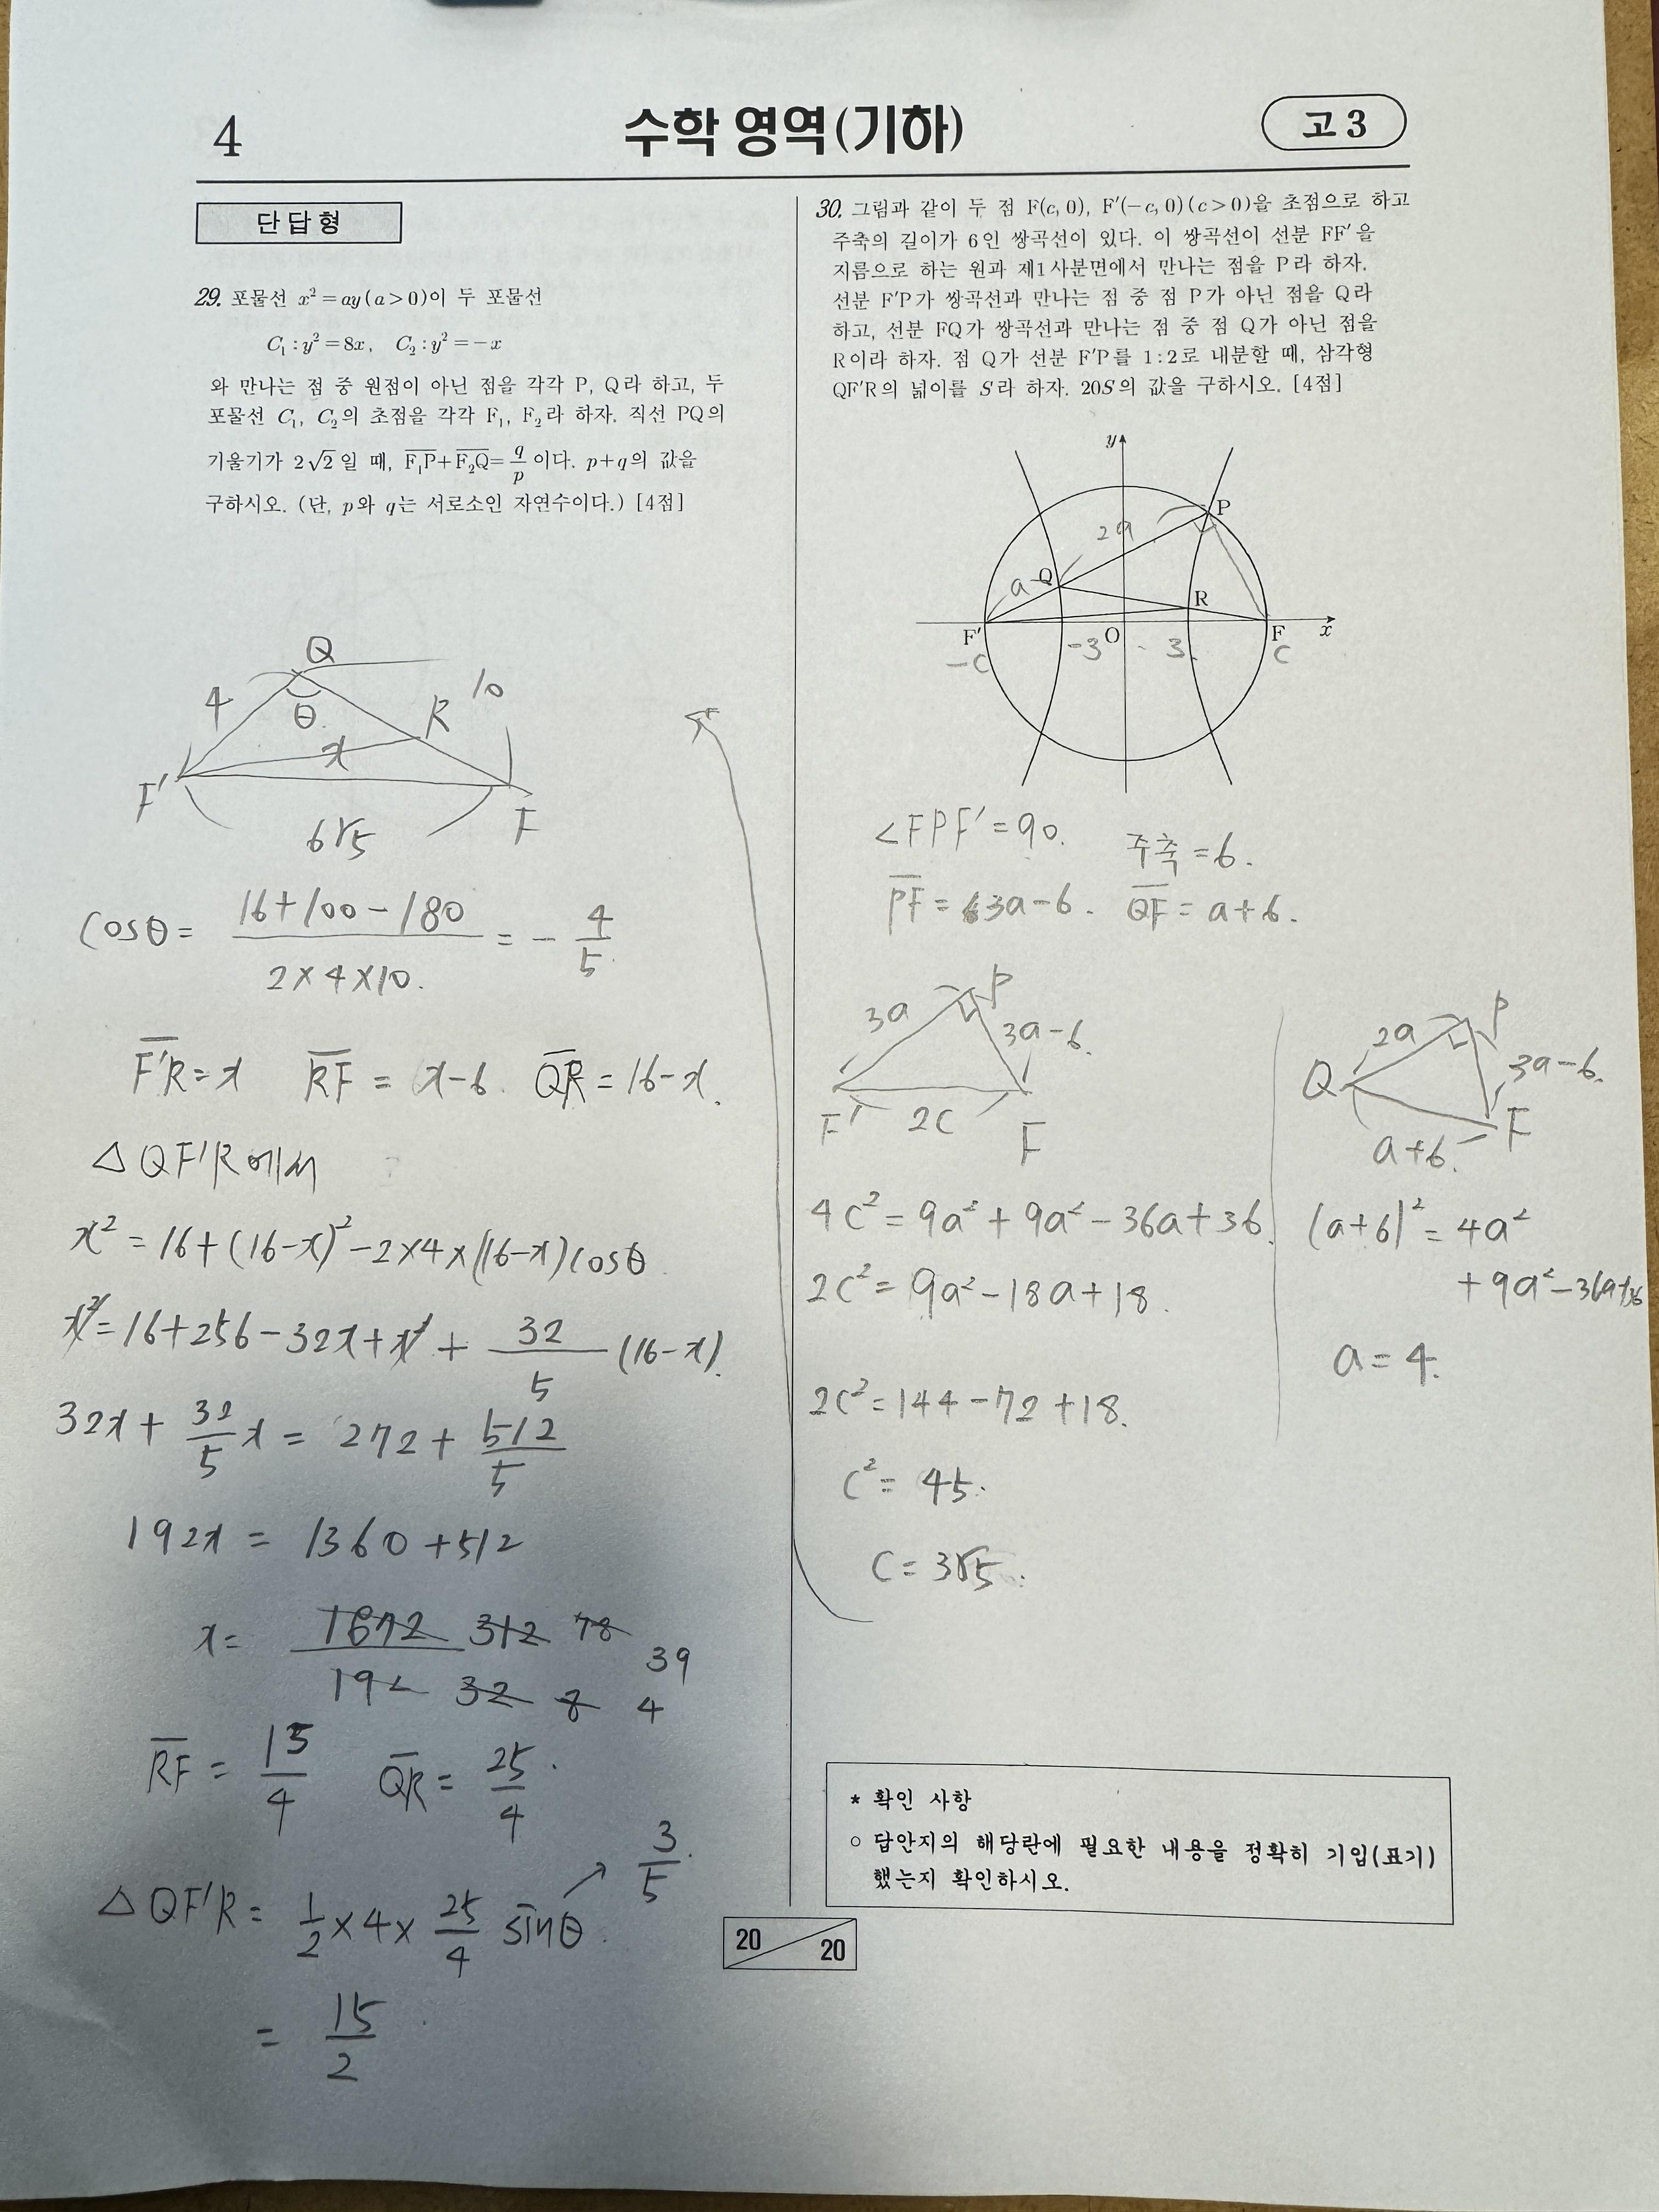 4
수학 영역(기하)
고 3
단 답 형
29. 포물선 x²=ay(a>0)이 두 포물선
C₁ : y²=8x, C₂ : y²=-x
와 만나는 점 중 원점이 아닌 점을 각각 P, Q라 하고, 두
포물선 C₁, C₂의 초점을 각각 F₁, F₂라 하자. 직선 PQ의
기울기가 2√2일 때, F₁P+F₂Q=q/p이다. p+q의 값을
구하시오. (단, p와 q는 서로소인 자연수이다.) [4점]
Q
4
θ
R
10
x
F'
F
6√5
cosθ = (16+100-180)/(2×4×10.) = -4/5
F'R=x RF = x-6. QR=16-x.
△QF'R에서
x²=16+(16-x)²-2×4×(16-x)cosθ
x²=16+256-32x+x²+32/5(16-x).
32x+32/5x = 272+512/5
192x = 1360+512
x= 312/32 78/8 39/4
RF = 13/4 QR = 25/4.
△QF'R = 1/2×4×25/4 sinθ. → 3/5.
= 15/2
30. 그림과 같이 두 점 F(c, 0), F'(-c, 0)(c>0)을 초점으로 하고
주축의 길이가 6인 쌍곡선이 있다. 이 쌍곡선이 선분 FF'을
지름으로 하는 원과 제1사분면에서 만나는 점을 P라 하자.
선분 F'P가 쌍곡선과 만나는 점 중 점 P가 아닌 점을 Q라
하고, 선분 FQ가 쌍곡선과 만나는 점 중 점 Q가 아닌 점을
R이라 하자. 점 Q가 선분 F'P를 1:2로 내분할 때, 삼각형
QF'R의 넓이를 S라 하자. 20S의 값을 구하시오. [4점]
y
P
2a
a
Q
R
F'
O
F
x
-c
-3
3
c
∠FPF'=90. 주축=6.
PF=3a-6. QF=a+6.
3a
P
3a-6.
F'
2c
F
2a
P
3a-6.
Q
F
a+6.
4c²=9a²+9a²-36a+36.
2c²=9a²-18a+18.
2c²=144-72+18.
c²=45.
c=3√5.
(a+6)²=4a²
+9a²-36a+36
a=4.
* 확인 사항
○ 답안지의 해당란에 필요한 내용을 정확히 기입(표기)
했는지 확인하시오.
20
20